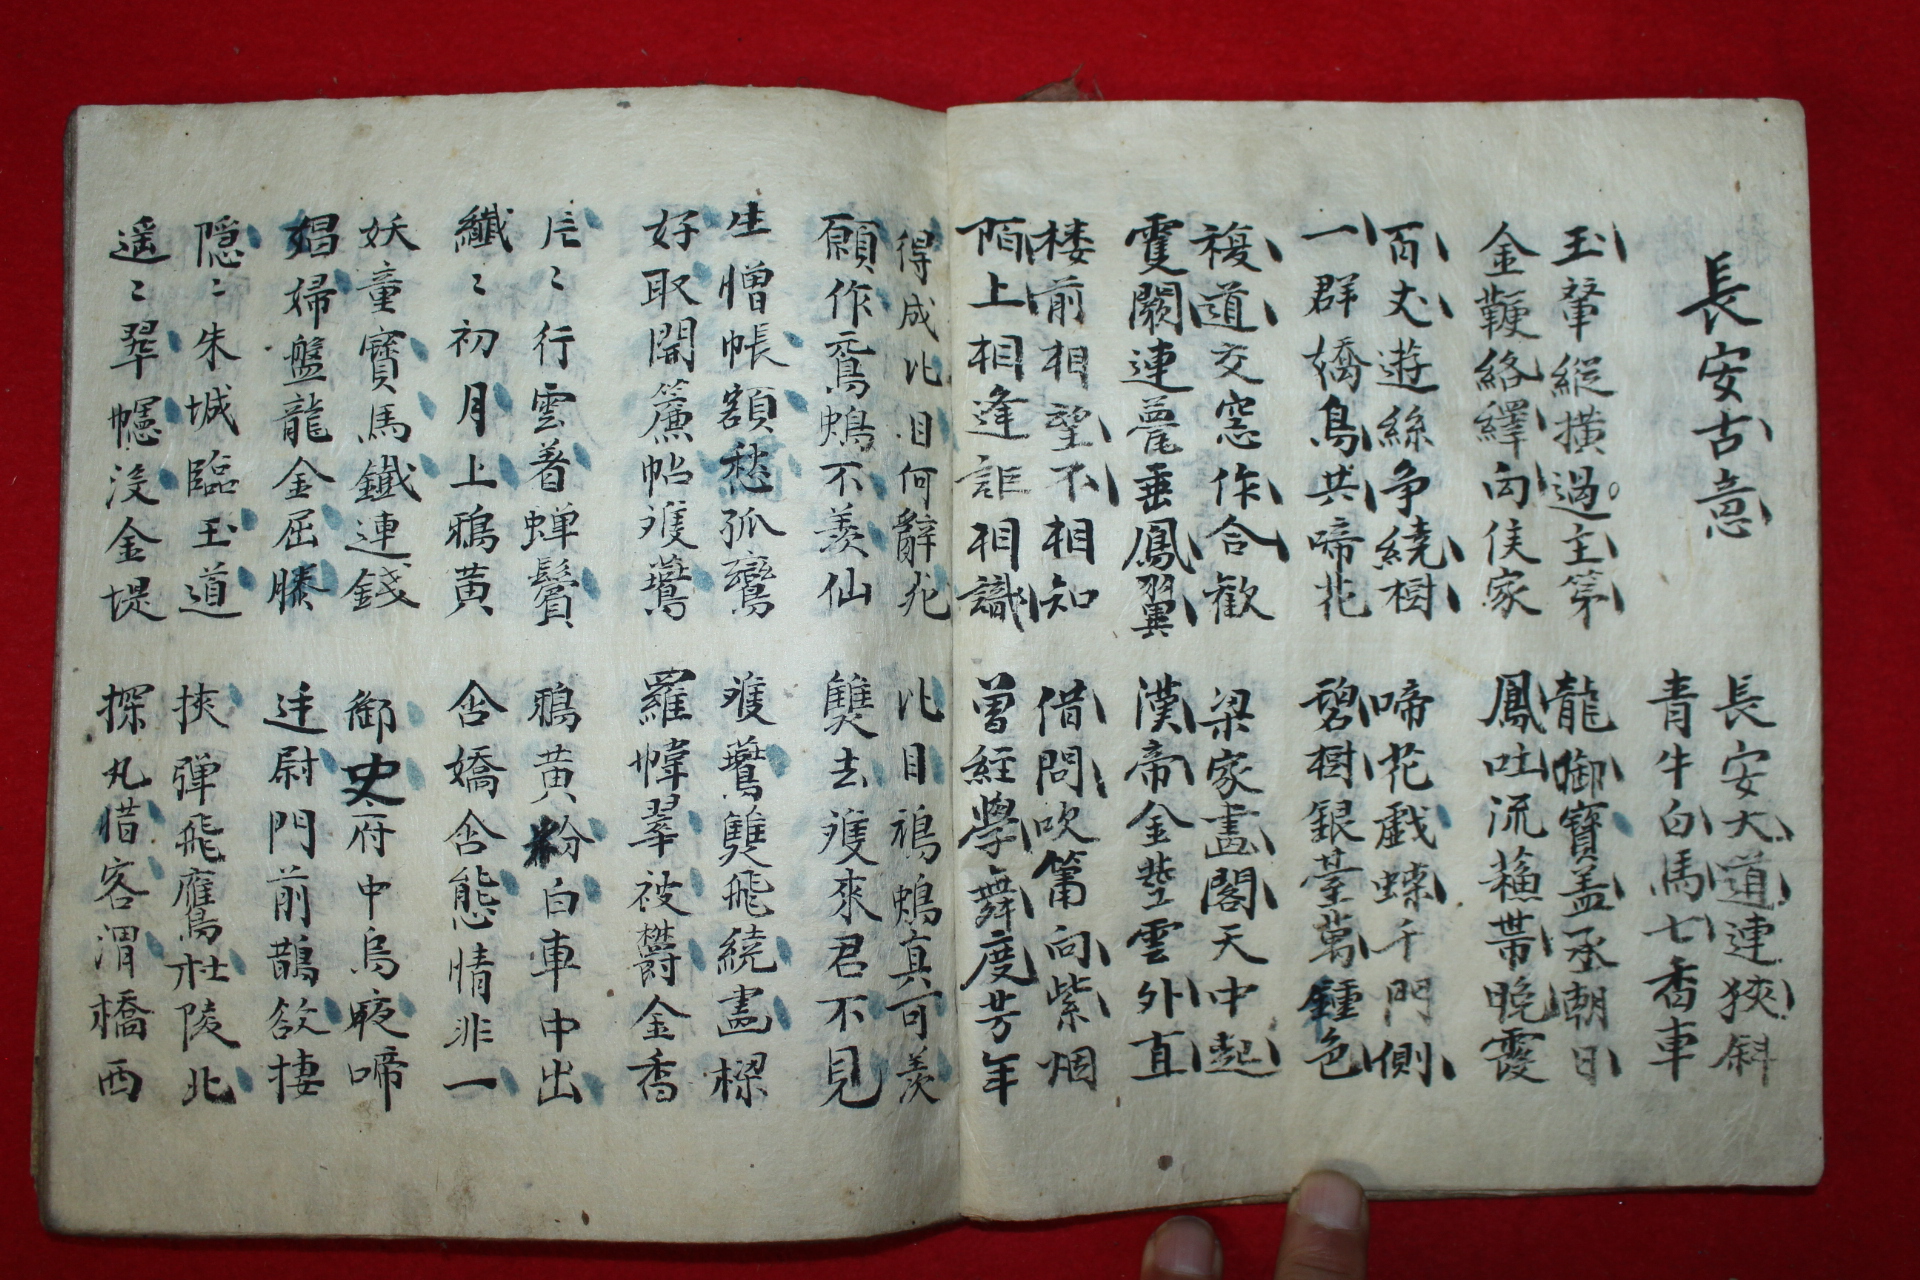 長安古意
長安大道連狹斜
青牛白馬七香車
玉輦縱橫過主第
金鞭絡繹向侯家
龍御寶盖丞朝日
鳳吐流蘓帶晚霞
百丈遊絲争繞樹
一群嬌鳥共啼花
啼花戯蝶千門側
碧樹銀臺萬鍾色
複道交窓作合歡
雙闕連甍垂鳳翼
梁家畫閣天中起
漢帝金莖雲外直
楼前相望不相知
陌上相逢詎相識
借問吹簫向紫烟
曽経學舞度芳年
得成比目何辭死
願作鴛鴦不羨仙
比目鴛鴦真可羨
雙去䨇來君不見
生憎帳額愁孤鸞
好取開簾帖䨇鷰
䨇鷰雙飛繞畫樑
羅幃翠被欝金香
片〻行雲着蟬鬢
纖〻初月上鴉黃
鴉黃粉白車中出
含嬌含態情非一
妖童寶馬鐵連錢
娼婦盤龍金屈膝
御史府中烏夜啼
廷尉門前鵲欲棲
隠〻朱城臨玉道
遥〻翠幰沒金堤
挾彈飛鷹杜陵北
探丸借客渭橋西